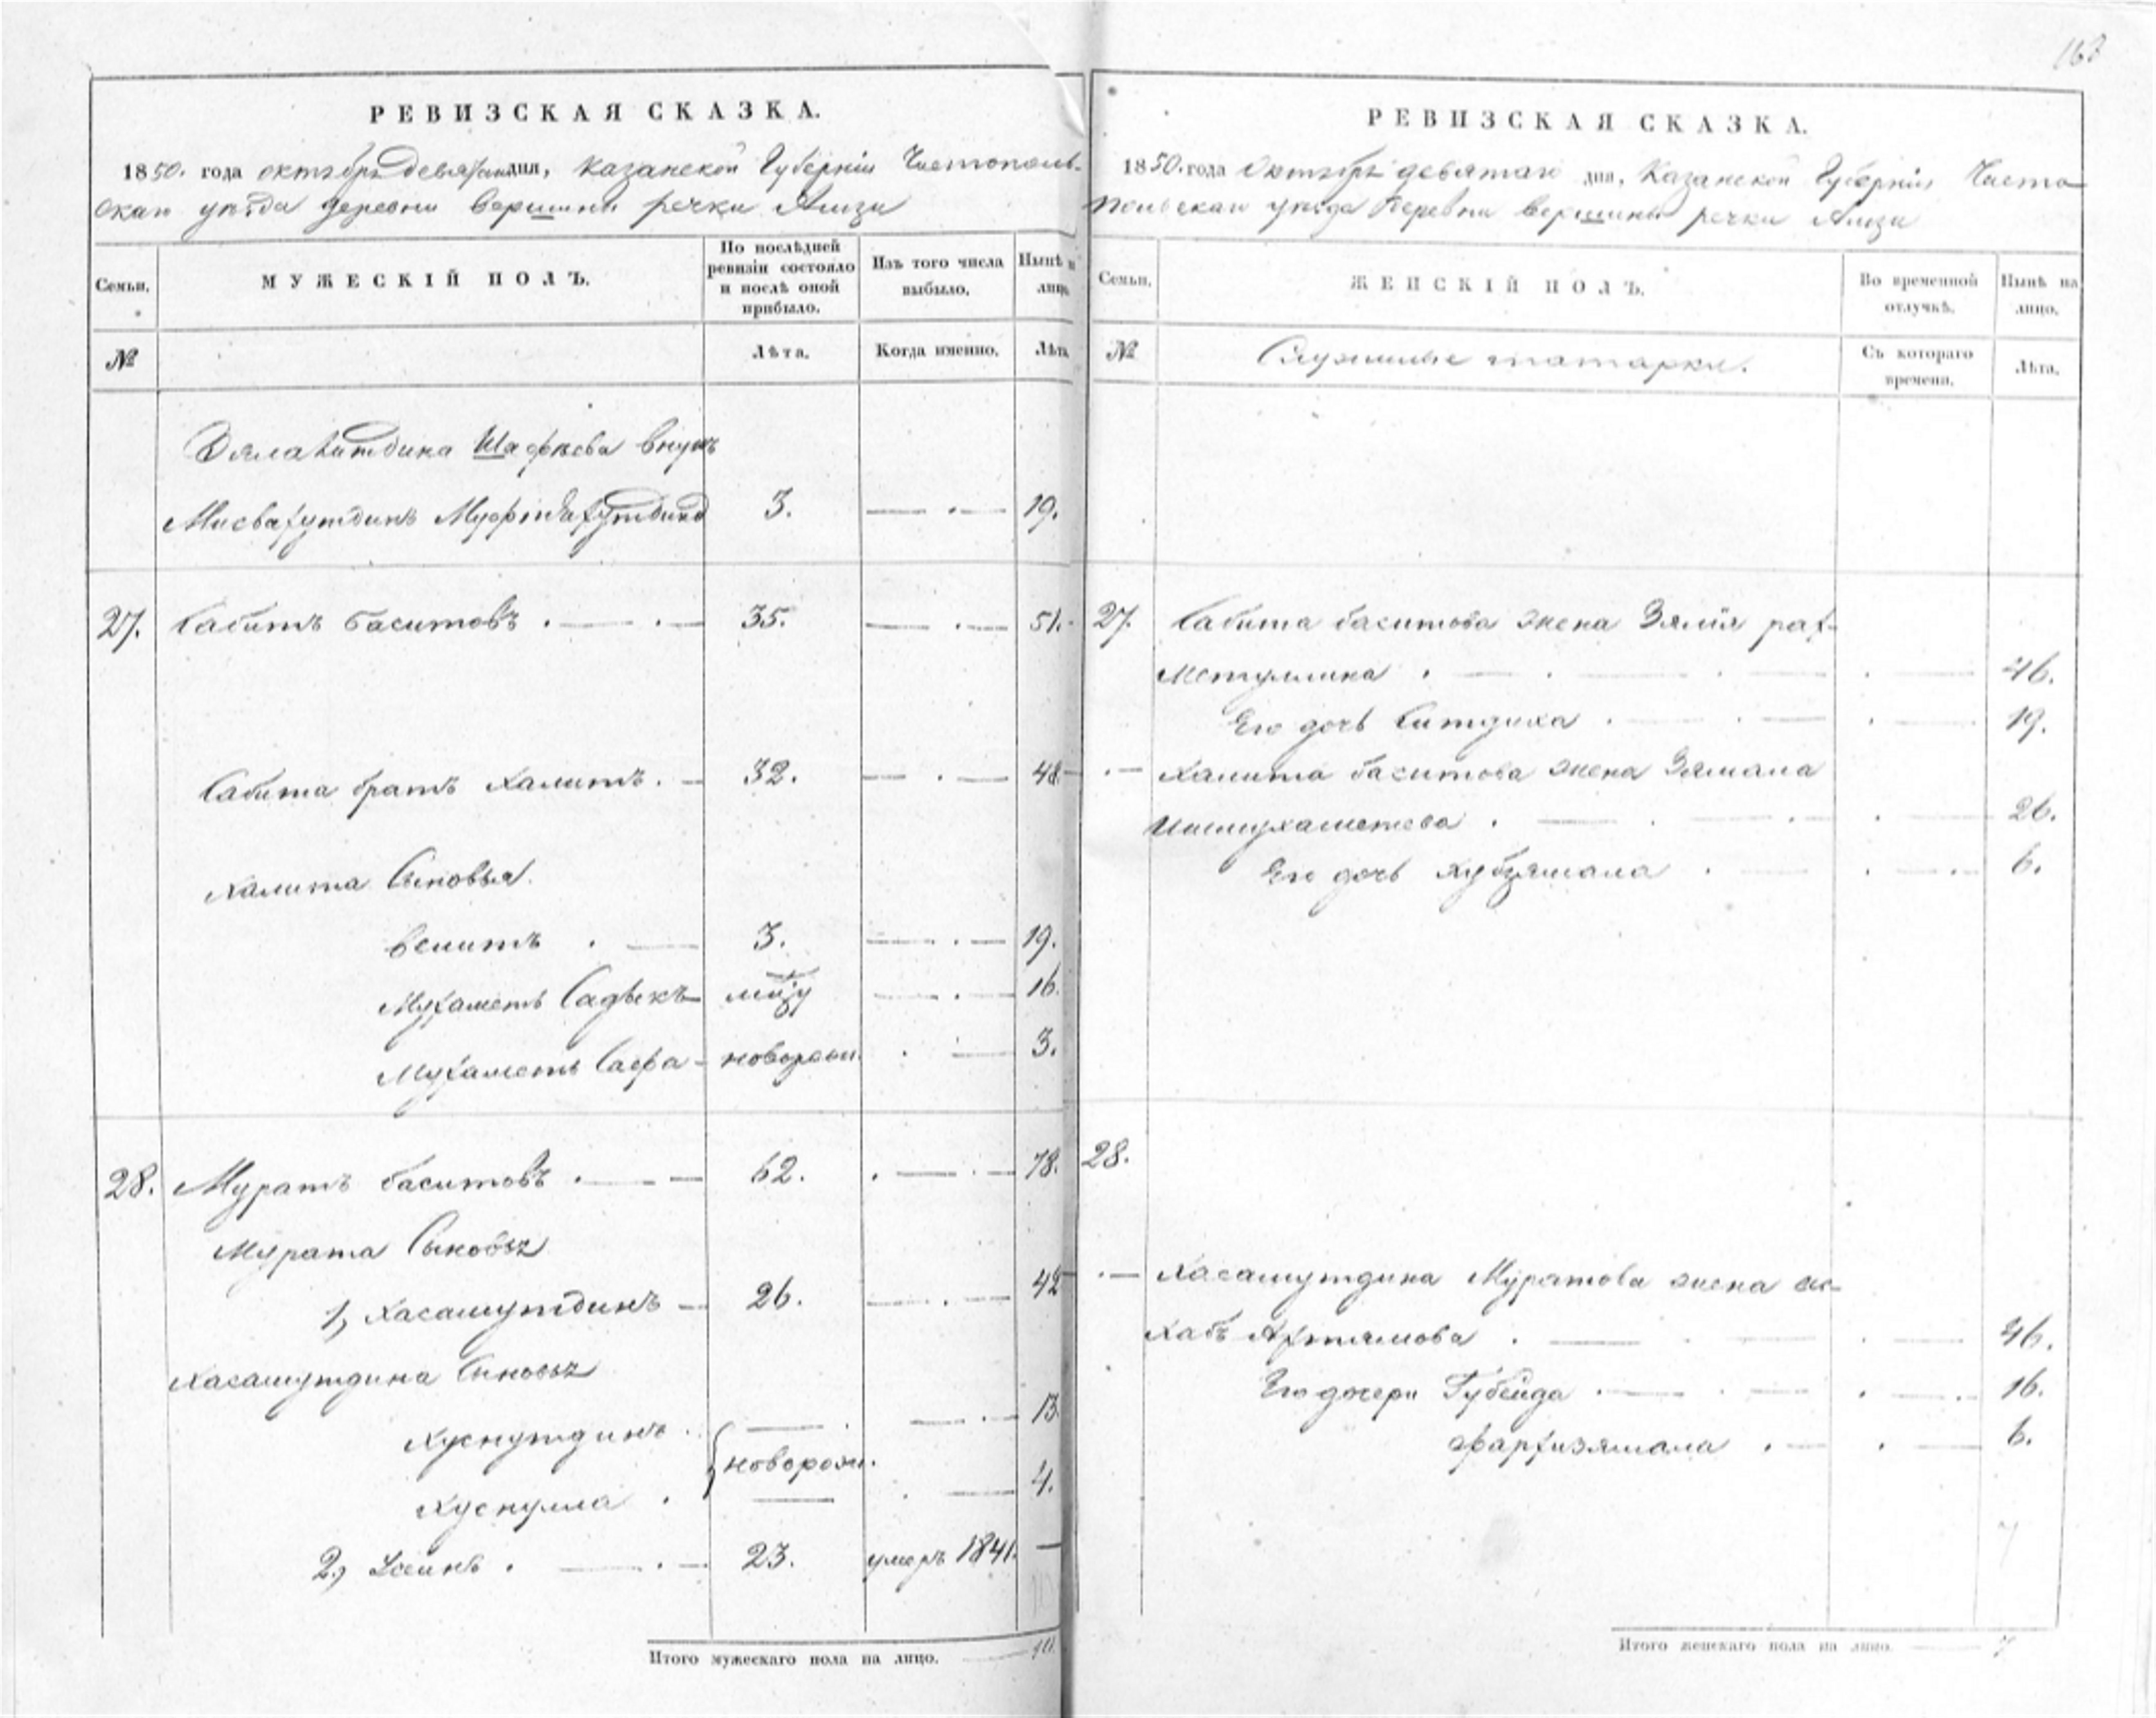 163
РЕВИЗСКАЯ СКАЗКА.
1850. года октября девятаго дня, Казанской Губерніи Чистополь-
скаго уѣзда деревни вершины речки Амзи
Семьи.
МУЖЕСКІЙ ПОЛЪ.
По послѣдней ревизіи состояло и послѣ оной прибыло.
Изъ того числа выбыло.
Нынѣ на лицо.
№
Лѣта.
Когда именно.
Лѣта
Шафѣева внукъ
3. — . — 19.
27. Сабитъ Баситовъ . — . — 35. — . — 51.
Сабита братъ Халитъ . — 32. — . — 48
Халита Сыновья
Велитъ . — 3. — . — 19.
Мухаметъ Садыкъ — . — 16.
Мухаметъ Сафа - новорож. . — 3.
28. Муратъ баситовъ . — — 62. . — . — 78.
Мурата Сыновья
1, Хасамутдинъ — 26. — . — 42
Хасамутдина Сыновья
Хуснутдинъ . — . — . — 13
новорож.
Хуснулла . — . — 4.
2, . — . — 23. умеръ 1841. —
10
Итого мужескаго пола на лицо. — 10.
РЕВИЗСКАЯ СКАЗКА.
1850. года Октября девятаго дня, Казанской Губерніи Чисто-
польскаго уѣзда деревни вершины речки Амзи
Семьи.
ЖЕНСКІЙ ПОЛЪ.
Во временной отлучкѣ.
Нынѣ на лицо.
№
Служилые татарки.
Съ котораго времени.
Лѣта.
27. Сабита баситова жена Зялия рах-
метуллина . — . — . — . — 46.
Его дочь Ситдиха . — . — . — 19.
. — Халита баситова жена Зямала
Ишмухаметева . — . — . — . — 26.
Его дочь Хубзямала . — . — . 6.
28.
. — Хасамутдина Муратова жена
Ахтямова . — . — . — 46.
Его дочери Губейда . — . — . — 16.
Фархизямала . — . — 6.
7
Итого женскаго пола на лицо. — 7